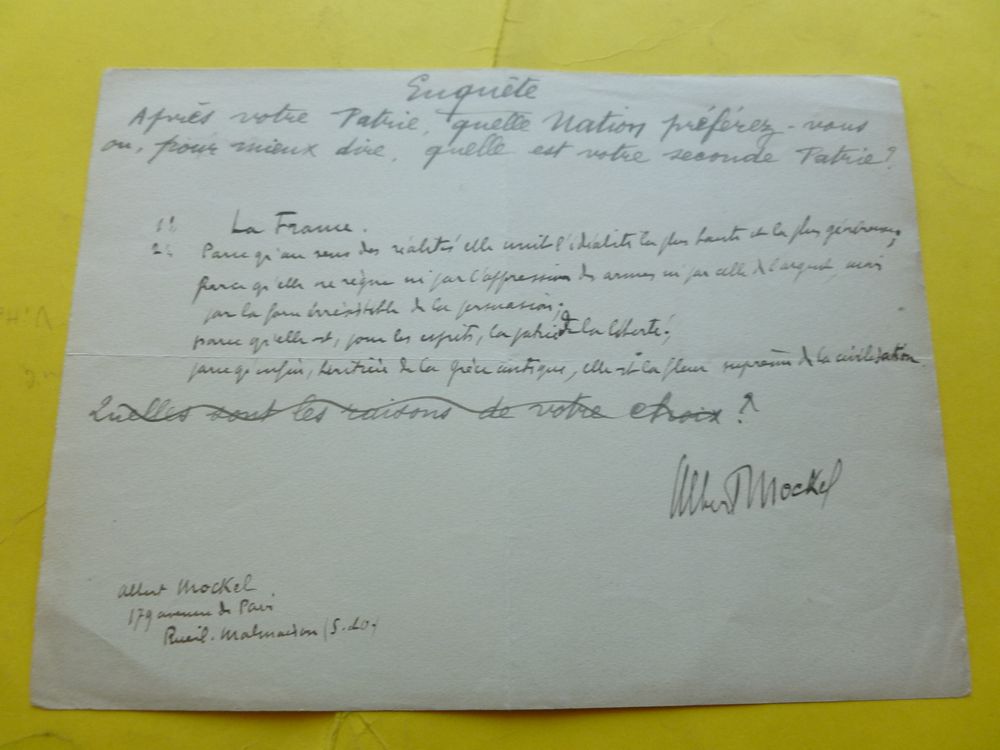 Enquête
Après votre Patrie, quelle Nation préférez-vous
ou, pour mieux dire, quelle est votre seconde Patrie?
1: La France.
2: Parce qu'au sens des réalités elle unit l'idéalité la plus haute et la plus généreuse;
parce qu'elle ne règne ni par l'oppression des armes ni par celle de l'argent, mais
par la force irrésistible de la persuasion;
parce qu'elle est, pour les esprits, la patrie de la liberté;
parce qu'enfin, héritière de la Grèce antique, elle est la fleur suprême de la civilisation.
Quelles sont les raisons de votre choix?
Albert Mockel
Albert Mockel
179 avenue de Paris
Rueil-Malmaison (S.&O.)